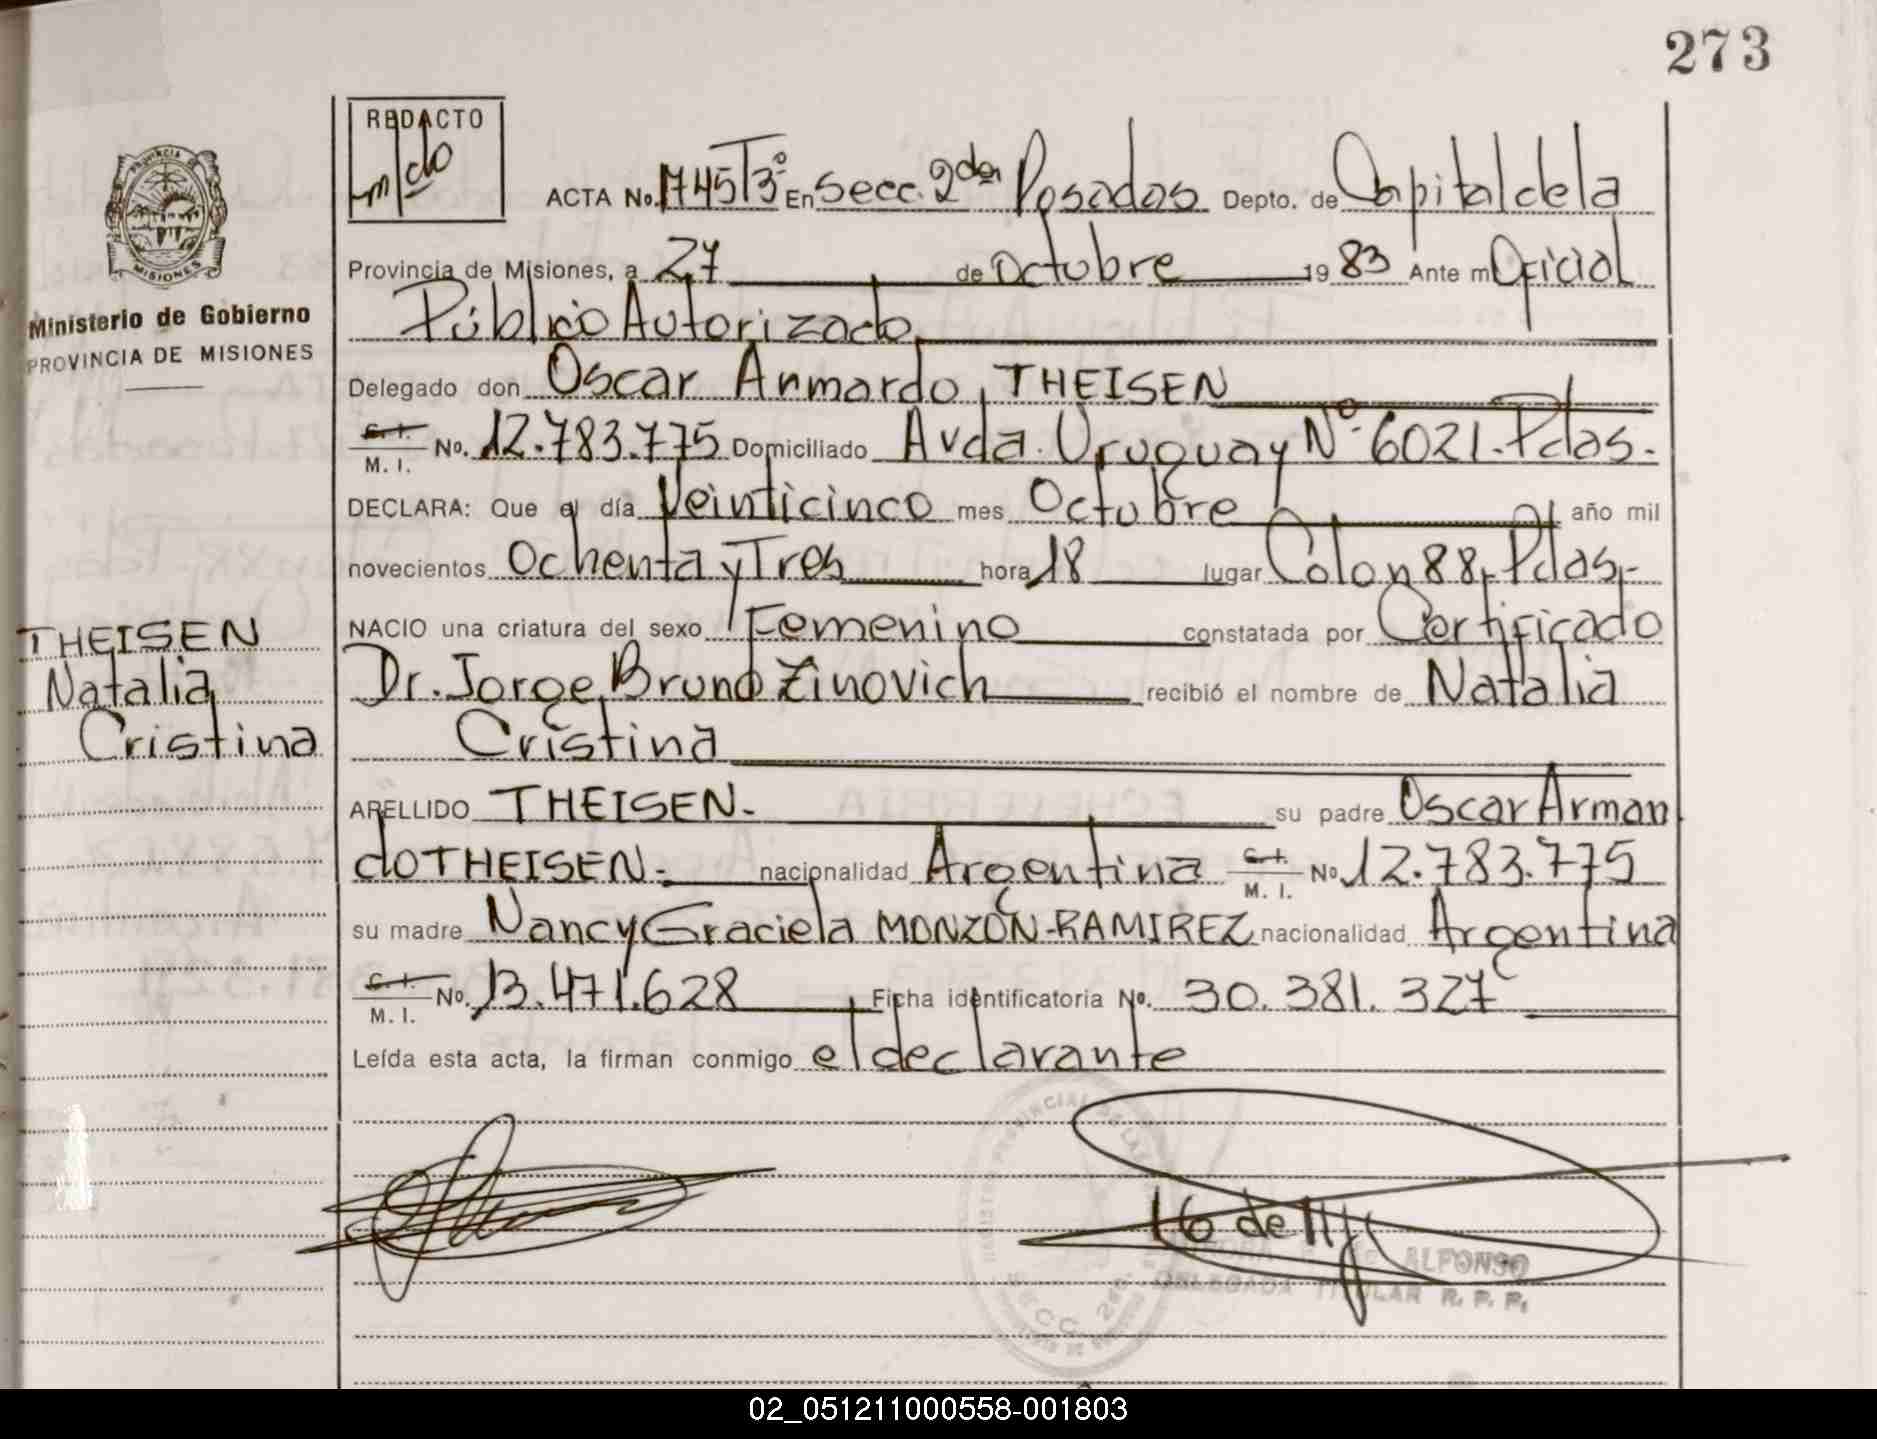 273
REDACTO
PROVINCIA DE
MISIONES
Ministerio de Gobierno
PROVINCIA DE MISIONES
ACTA No. 1745 T3º En Secc. 2da Posadas Depto. de Capital de la
Provincia de Misiones, a 27 de Octubre 1983 Ante mi Oficial
Público Autorizado
Delegado don Oscar Armando THEISEN
C.I. M.I. No. 12.783.775 Domiciliado Avda. Uruguay Nº 6021-Pdas.-
DECLARA: Que el día Veinticinco mes Octubre año mil
novecientos Ochenta y Tres hora 18 lugar Colon 88, Pdas,-
NACIO una criatura del sexo Femenino constatada por Certificado
Dr. Jorge Bruno Zinovich recibió el nombre de Natalia
Cristina
THEISEN
Natalia
Cristina
APELLIDO THEISEN.- su padre Oscar Arman
do THEISEN.- nacionalidad Argentina C.I. M.I. No 12.783.775
su madre Nancy Graciela MONZÓN-RAMIREZ nacionalidad Argentina
C.I. M.I. No. 13.471.628 Ficha identificatoria No. 30.381.327
Leída esta acta, la firman conmigo el declarante
16 de
DE ALFONSO
DELEGADA TITULAR R. P. P.
SECC. 2da.
02_051211000558-001803